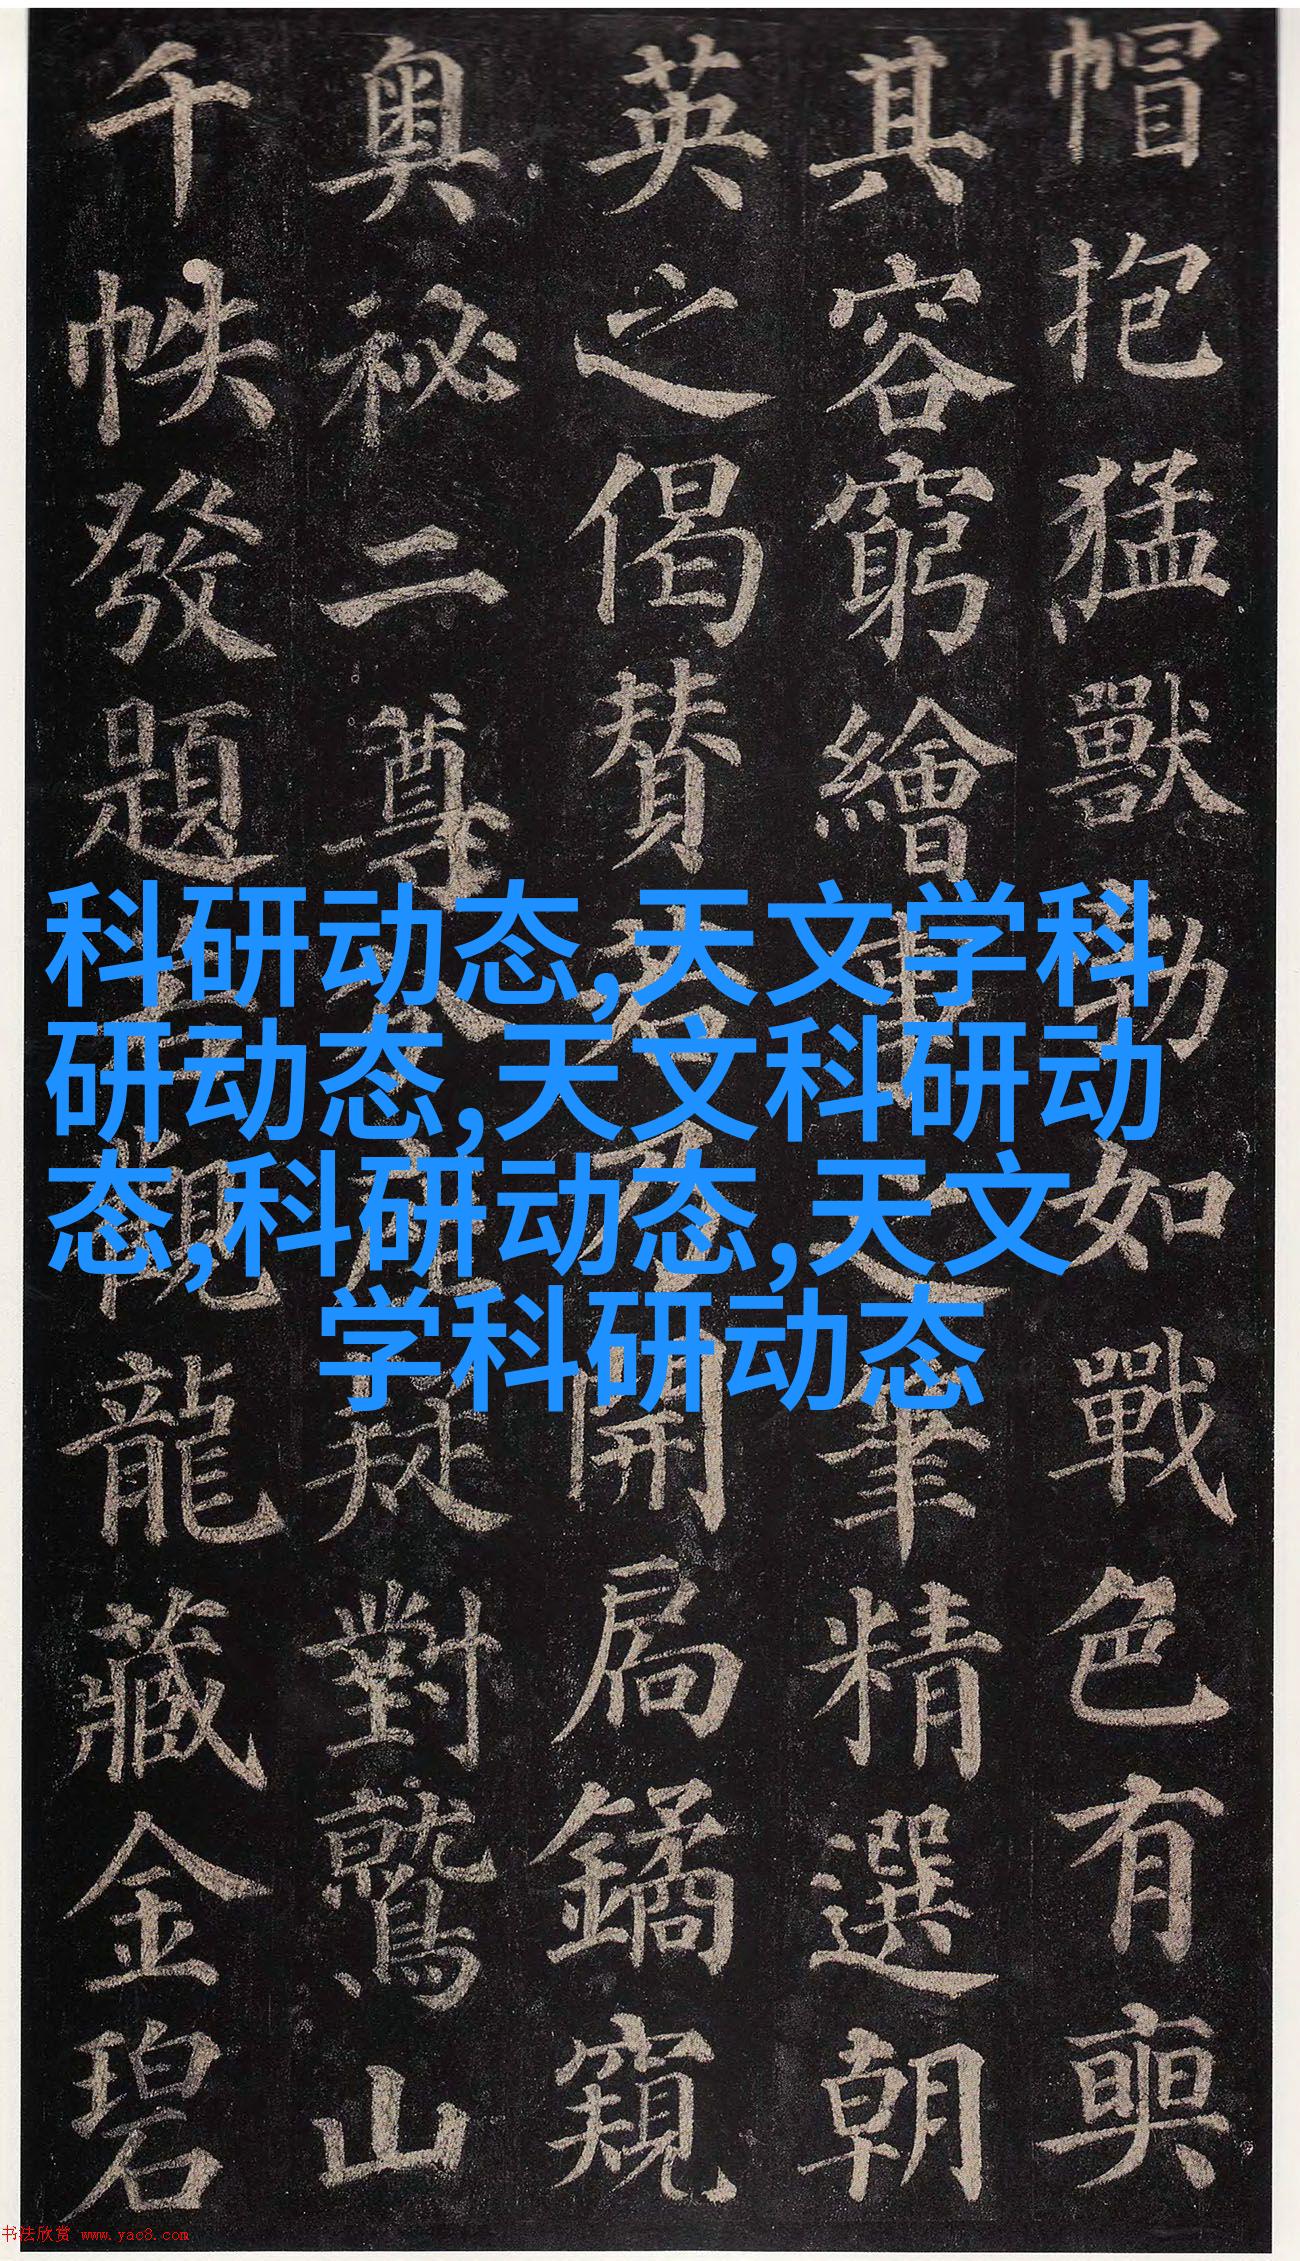 帽抱猛獸勃如戰色有奭
其容窮繪事之筆精選朝
英之偈贊若乃開扃鐍窺
奧祕二尊分座疑對鷲山
千帙發題若觀龍藏金碧
科研动态,天文学科
研动态,天文科研动
态,科研动态,天文
学科研动态
书法欣赏 www.yac8.com